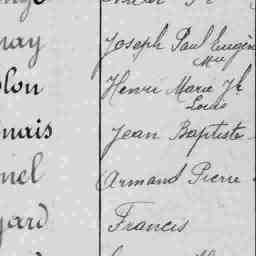 nay Joseph Paul Eugène
Mie
olon Henri Marie Jh
Louis
nais Jean Baptiste
nel Armand Pierre
yard Francis